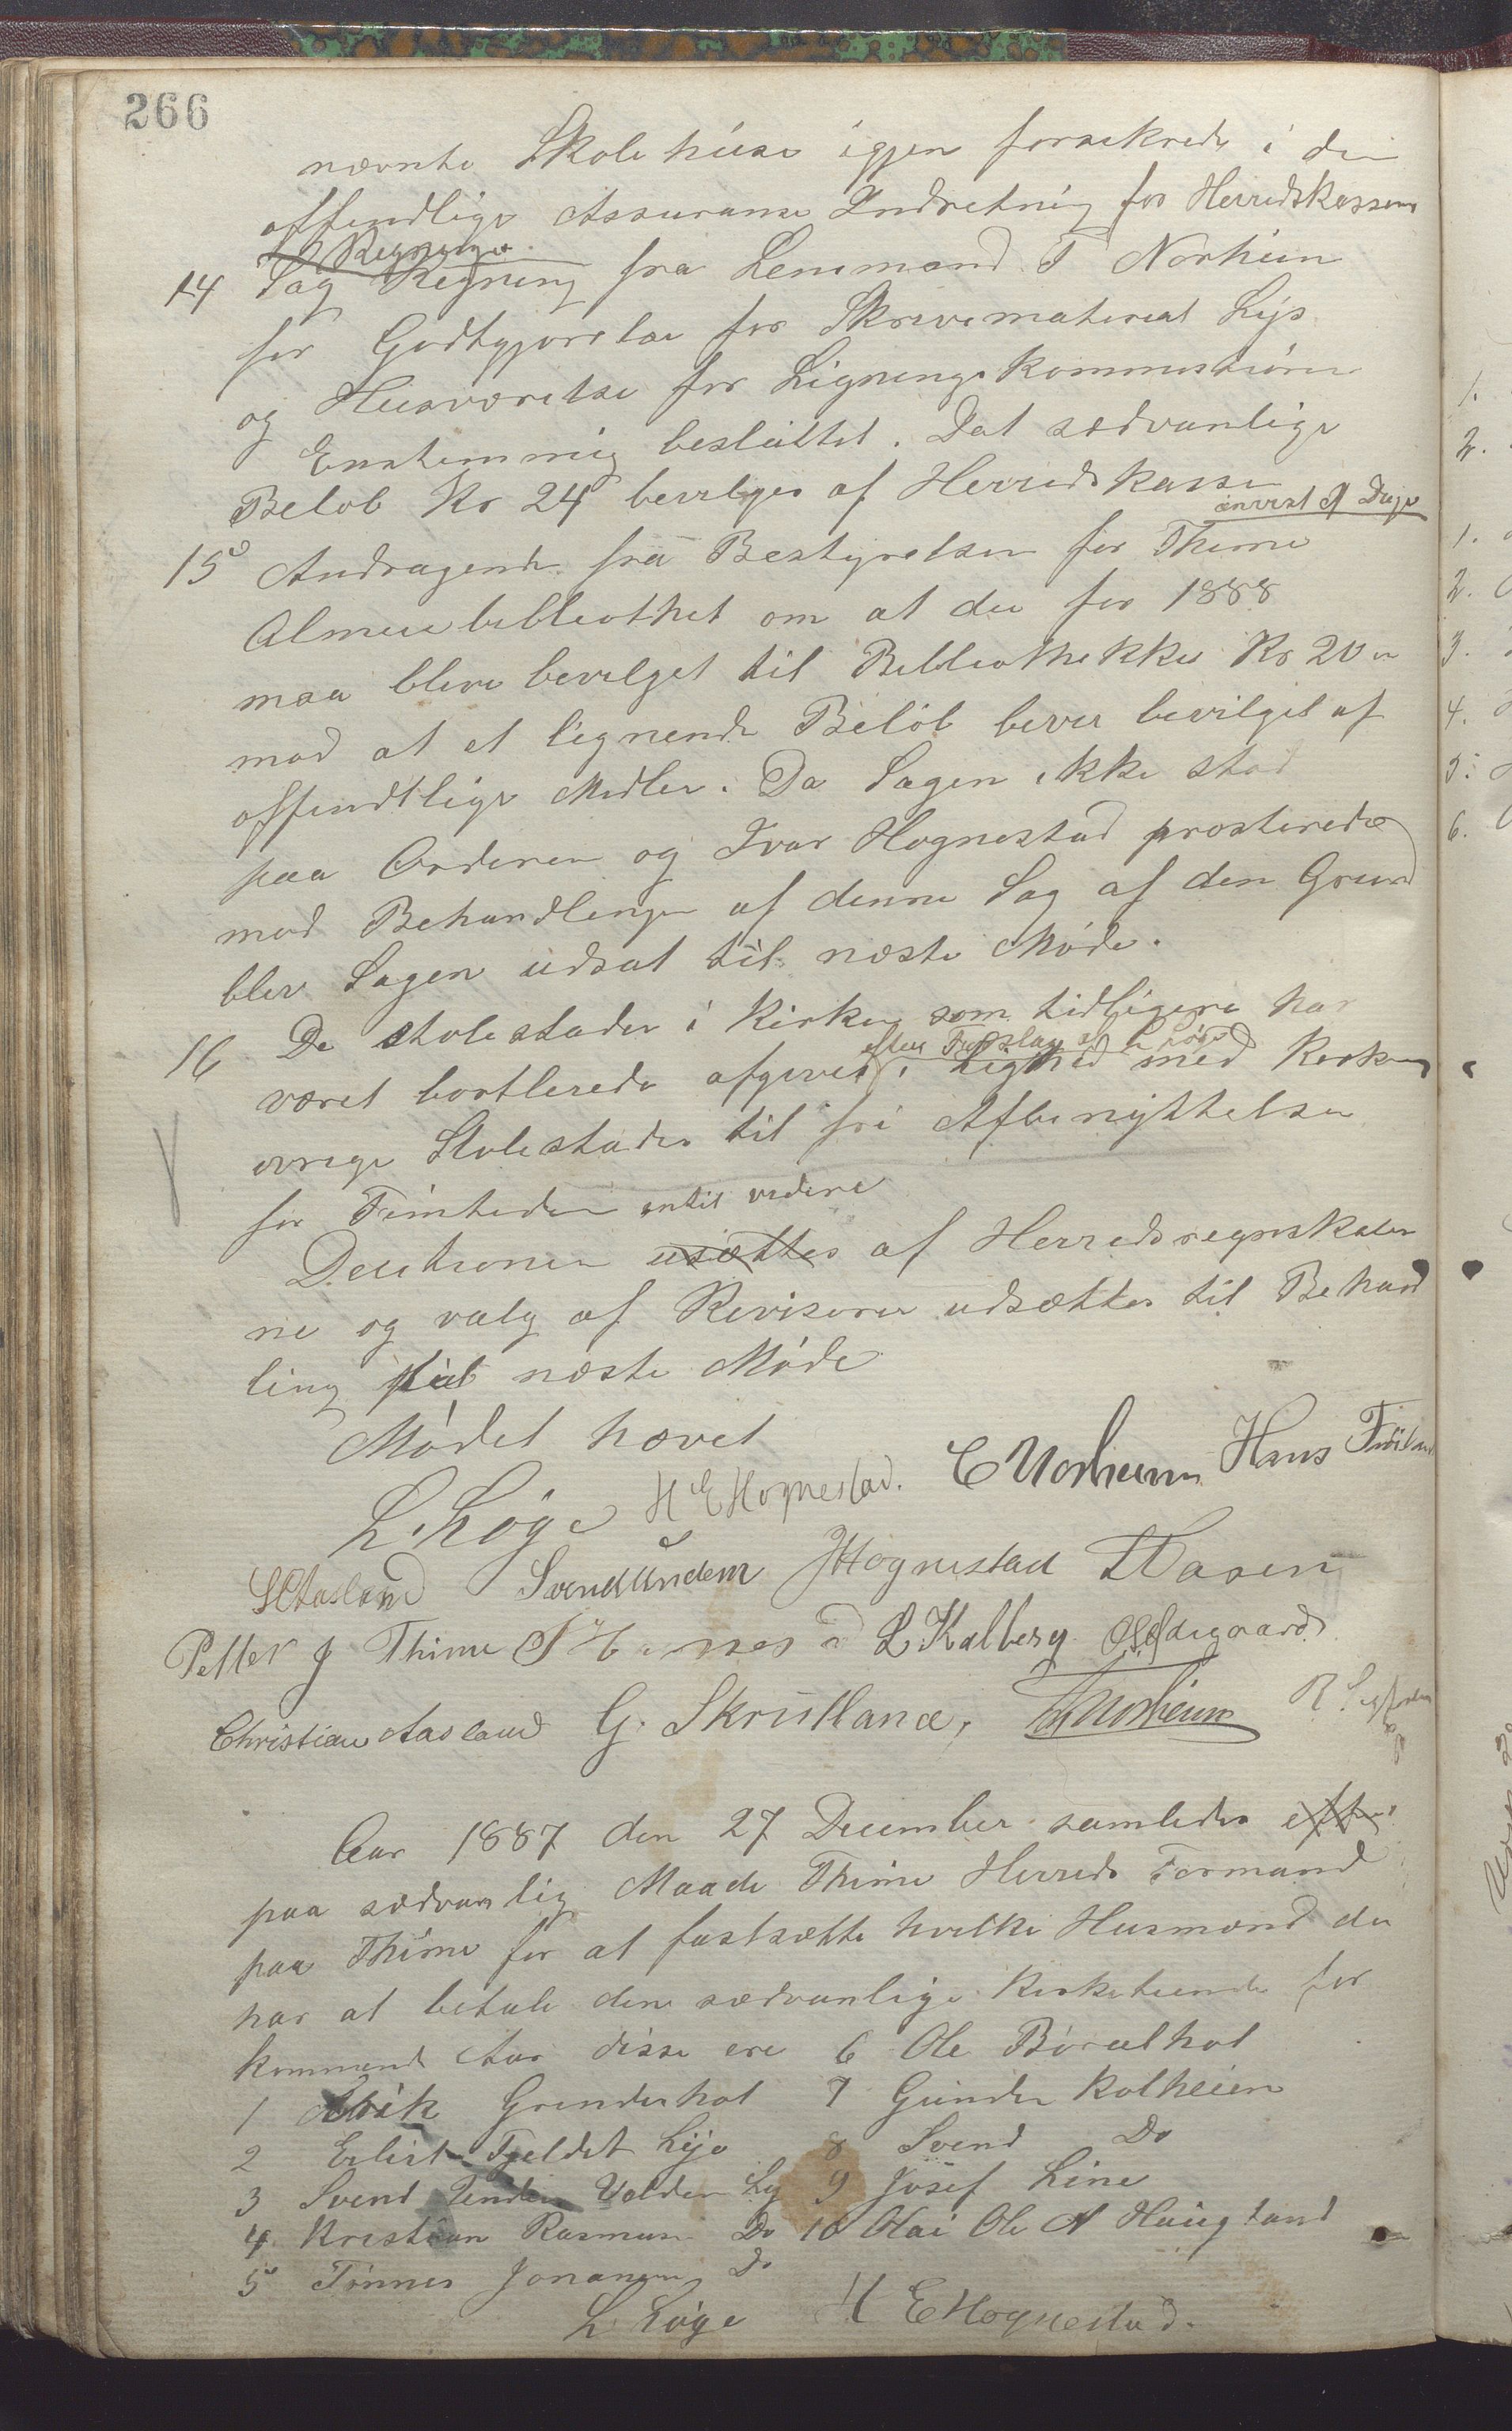 266
nævnte Skolehuse igjen forsikrede i den
offendlige Assuranse Indretning for Herredskassens
Regning
14 Sag Regning fra Lensmand T Norheim
for Godtgjørelse for Skrivematerial Lys
og Husværelse for Ligningskommissionen
Enstemmig besluttet. Det sædvanlige
Beløb Kr 24 bevilges af Herredskassen
anvist
15 Andragende fra Bestyrelsen for Thime
Almuebibliothek om at der for 1888
maa blive bevilget til Bibliothekket Kr 20
mod at et lignende Beløb bever bevilget af
offendtlige Midler. Da Sagen ikke stod
paa Orderen og Ivar Hognestad prosterede
mod Behandlingen af denne Sag af den Grund
blev Sagen udsat til næste Møde.
16 De stolestader i Kirken som tidligere har
efter Forslag af L Løge
været bortleiede afgives i Lighed med Kirkens
øvrige Stolestader til fri Afbenyttelse
for Fremtiden indtil videre
Decisionen usættes af Herredsregnskaber
ne og valg af Revisorer udsættes til Behand
ling til næste Møde
Mødet hævet
L. Løge H E Hognestad. C Norheim Hans Frøiland
S Aasland Svend Undem I Hognestad T Haaren
Petter J Thime L Kalberg O Ødegaard
Christian Aasland G. Skrutland, T Norheim
Aar 1887 den 27 December samledes efter
paa sædvanlig Maade Thime Herreds Formand
paa Thime for at fastsætte hvilke Husmænd der
har at betale den sædvanlige Kirketiende for
kommende Aar disse ere 6 Ole Boralhol
1 Grenderhol 7 Gunder Kolheien
2 Fjeldet Lye 8 Svend Do
3 Svend Volden Ly 9 Josef Line
4 Kristian Rasmus Do 10 Ole A Haugland
5 Tønnes Jonasen Do
L Løge H E Hognestad.
1.
2.
1.
2.
3.
4.
5.
6.